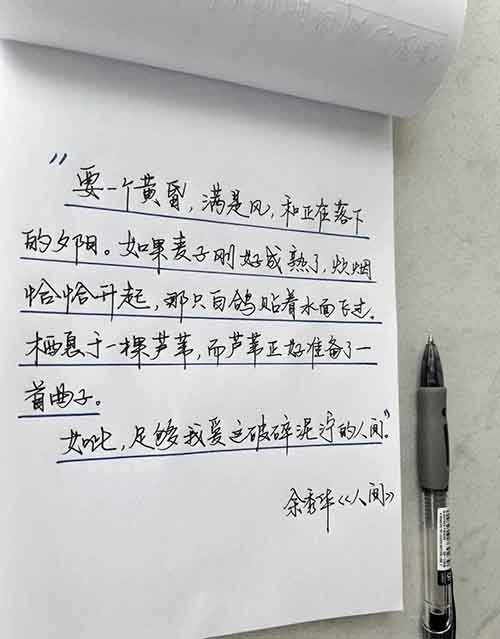 "要一个黄昏，满是风，和正在落下
的夕阳。如果麦子刚好成熟了，炊烟
恰恰升起，那只白鸽贴着水面飞过。
栖息于一棵芦苇，而芦苇正好准备了一
首曲子。
如此，足够我爱这破碎泥泞的人间。"
余秀华《人间》